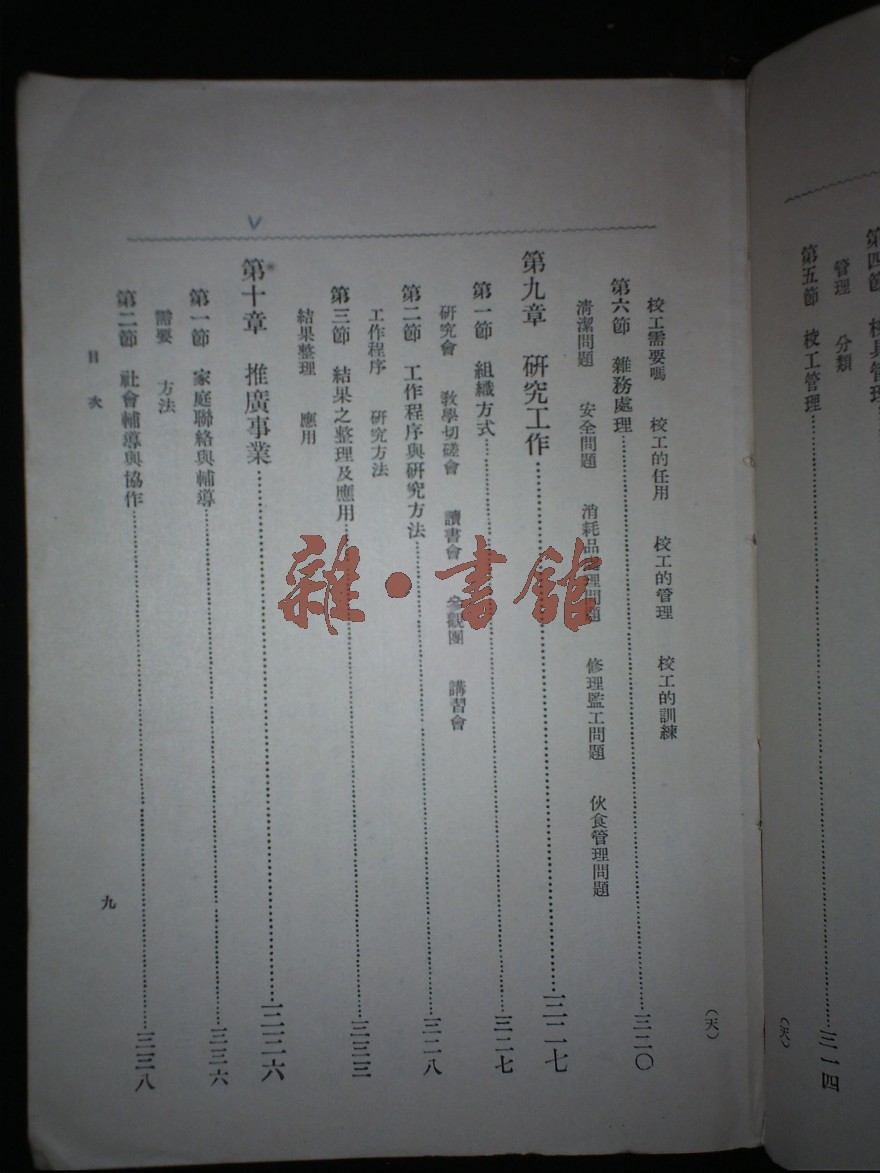 第四節 校具管理
管理 分類
第五節 校工管理……三一四
(天)
(天)
校工需要嗎 校工的任用 校工的管理 校工的訓練
第六節 雜務處理……三二〇
清潔問題 安全問題 消耗品處理問題 修理監工問題 伙食管理問題
第九章 研究工作……三二七
第一節 組織方式……三二七
研究會 教學切磋會 讀書會 參觀團 講習會
第二節 工作程序與研究方法……三二八
工作程序 研究方法
第三節 結果之整理及應用……三三三
結果整理 應用
第十章 推廣事業……三三六
第一節 家庭聯絡與輔導……三三六
需要 方法
第二節 社會輔導與協作……三三八
目次 九
雜·書館